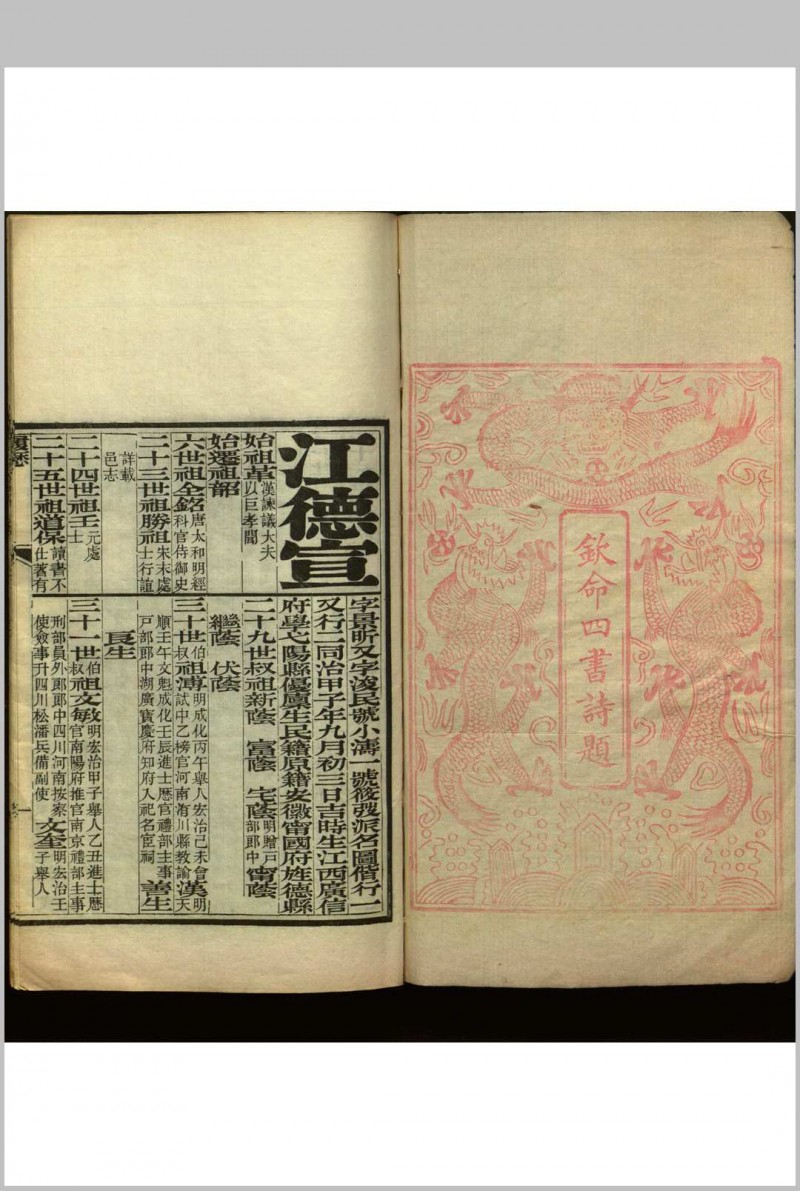 欽命四書詩題
江德宣
字景昕又字浚民號小濤一號筱
派名圖偕行一
又行二同治甲子年九月初三日吉時生江西廣信
府學弋陽縣優廩生民籍原籍安徽甯國府旌德縣
始祖革漢諫議大夫以巨孝聞
始遷祖韶
六世祖全銘唐太和明經科官侍御史
二十三世祖勝祖宋末處士行誼詳載邑志
二十四世祖壬元處士
二十五世祖道保讀書不仕著有
二十九世叔祖新蔭 富蔭 宅蔭明贈戶部郎中甯蔭
繼蔭 伏蔭
三十世伯叔祖溥明成化丙午舉人宏治己未會試中乙榜官河南洧川縣教諭漢明天
順壬午文魁成化壬辰進士歷官禮部主事戶部郎中湖廣寶慶府知府入祀名宦祠善生
長生
三十一世伯叔祖文敏明宏治甲子舉人乙丑進士歷官南陽府推官南京禮部主事
刑部員外郎郎中四川河南按察使僉事升四川松潘兵備副使文奎明宏治壬子舉人
履歷
一